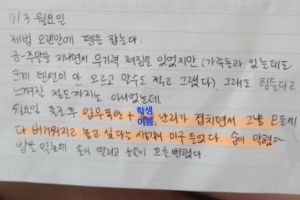 7/3 월요일
제법 오랜만에 펜을 잡는다.
금-주말을 지나면서 무기력 해짐은 있었지만 (가족들과 있는데도
텐션이 안 오르고 말수도 적고 그랬다). 그래도 힘들다고
느껴진 정도까지는 아니었는데
월요일 업무폭탄 + 학생이름 난리가 겹치면서 그냥 모든게
다 버거워지고 울고 싶다는 생각이 마구 들었다. 숨이 막혔고
밥을 먹는데 손이 떨리고 눈물이 흐를 뻔했다.